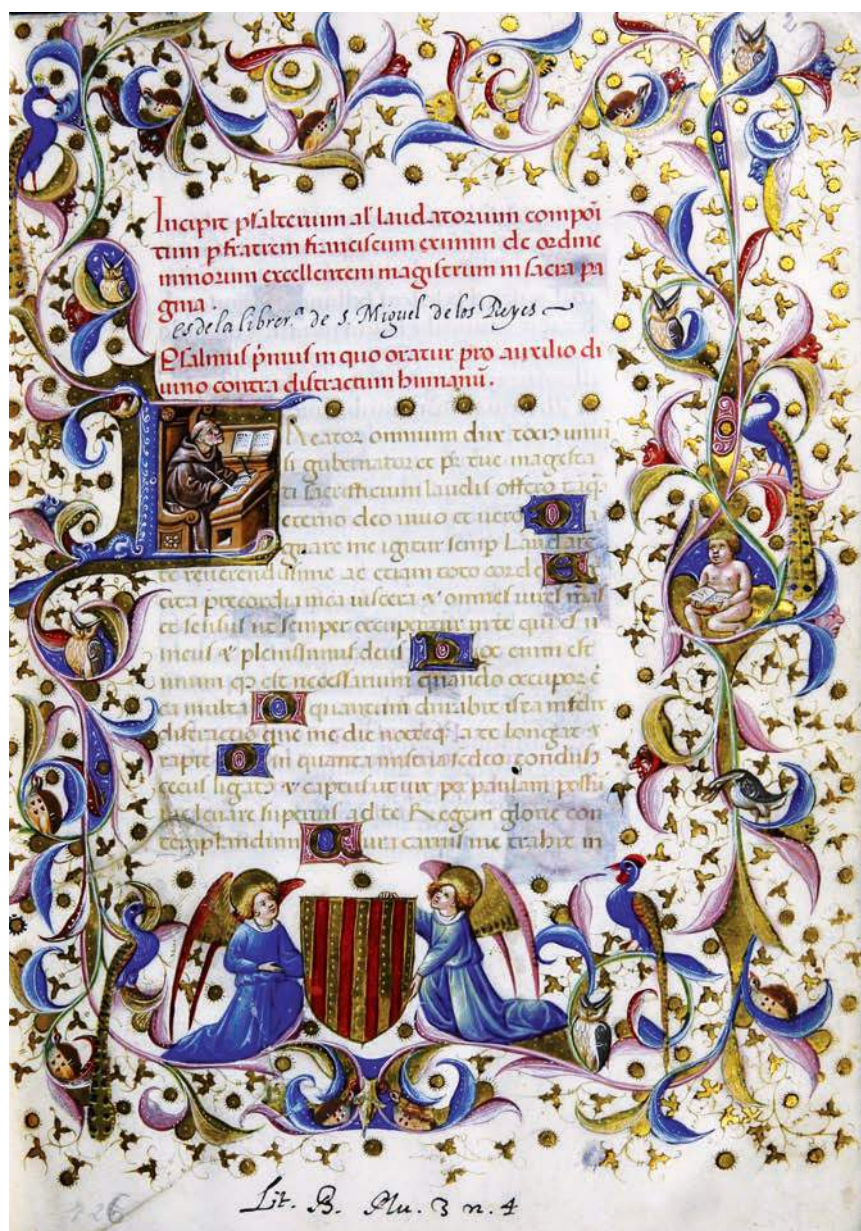 2
Incipit psalterium al' laudatorium compoi
tum p fratrem franciscum eximin de ordine
minorum excellentem magistrum in sacra pa
gina .
es de la librer.ª de s. Miguel de los Reyes
Psalmus p̄mus in quo oratur pro auxilio di
uino contra distractum humanū.
Creator omnium dux toci9
gubernator et pr̄ tue magesta
ti sacrificium laudis offero
eterno deo uiuo et uero
me igitur semp Laudare
te reuerendissime ac etiam toto corde
precordia mea uiscera & omnes uires
et sensus ut semper occupentur in te qui es u
nicus & plenissimus deus hoc enim est
unum qd est necessarium quando occupor
ca multa O quantum durabit ista infelix
distractio que me die nocteq a te longat &
rapit O in quanta sedeo
cecus ligat9 & captus ut uix per paulam possum
leuare superius ad te Regem glorie con
templandum carnis me trahit in
226
Lit. B. Plu. 3 n. 4